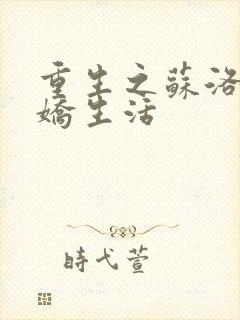 重生之蘇洛
嬌生活
時弋萱